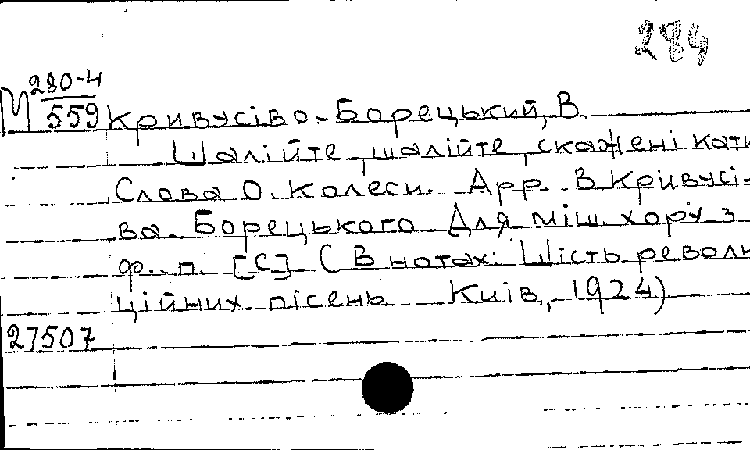 284
М 280-4
559 Кривусіво-Борецький, В.
Шалійте, шалійте, скажені кати
Слова О. Колеси. Арр. В Кривусі-
ва-Борецького Для міш. хору з
ф.-п. [С] (В нотах: Шість револю
ційних пісень Київ, 1924)
27507